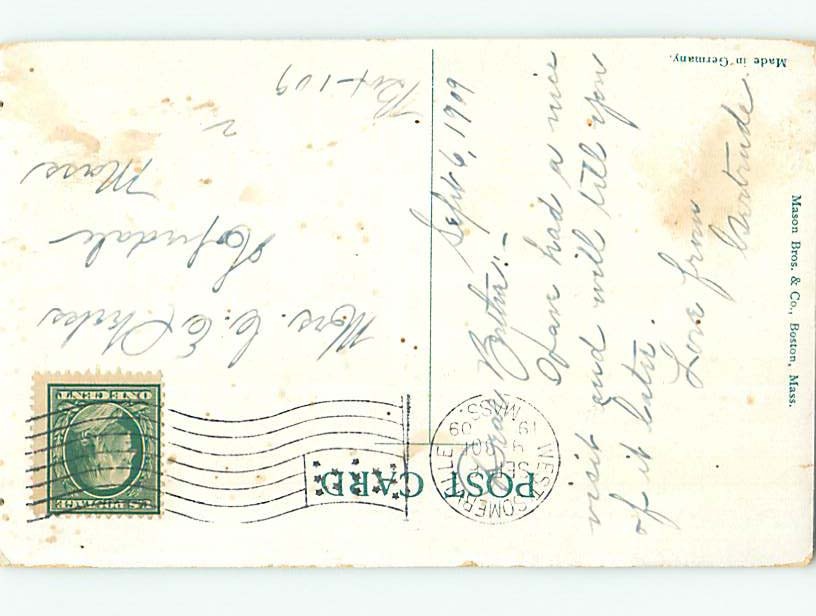 POST CARD
WEST SOMERVILLE
SEP 6
19 09
MASS.
U.S. POSTAGE
ONE CENT
Sept 6, 1909
Dear Bertha:-
Have had a nice
visit and will tell you
of it later.
Love from
Gertrude.
Mrs. C. E.
Hopedale
Mass
Box 109
Made in Germany.
Mason Bros. & Co., Boston, Mass.